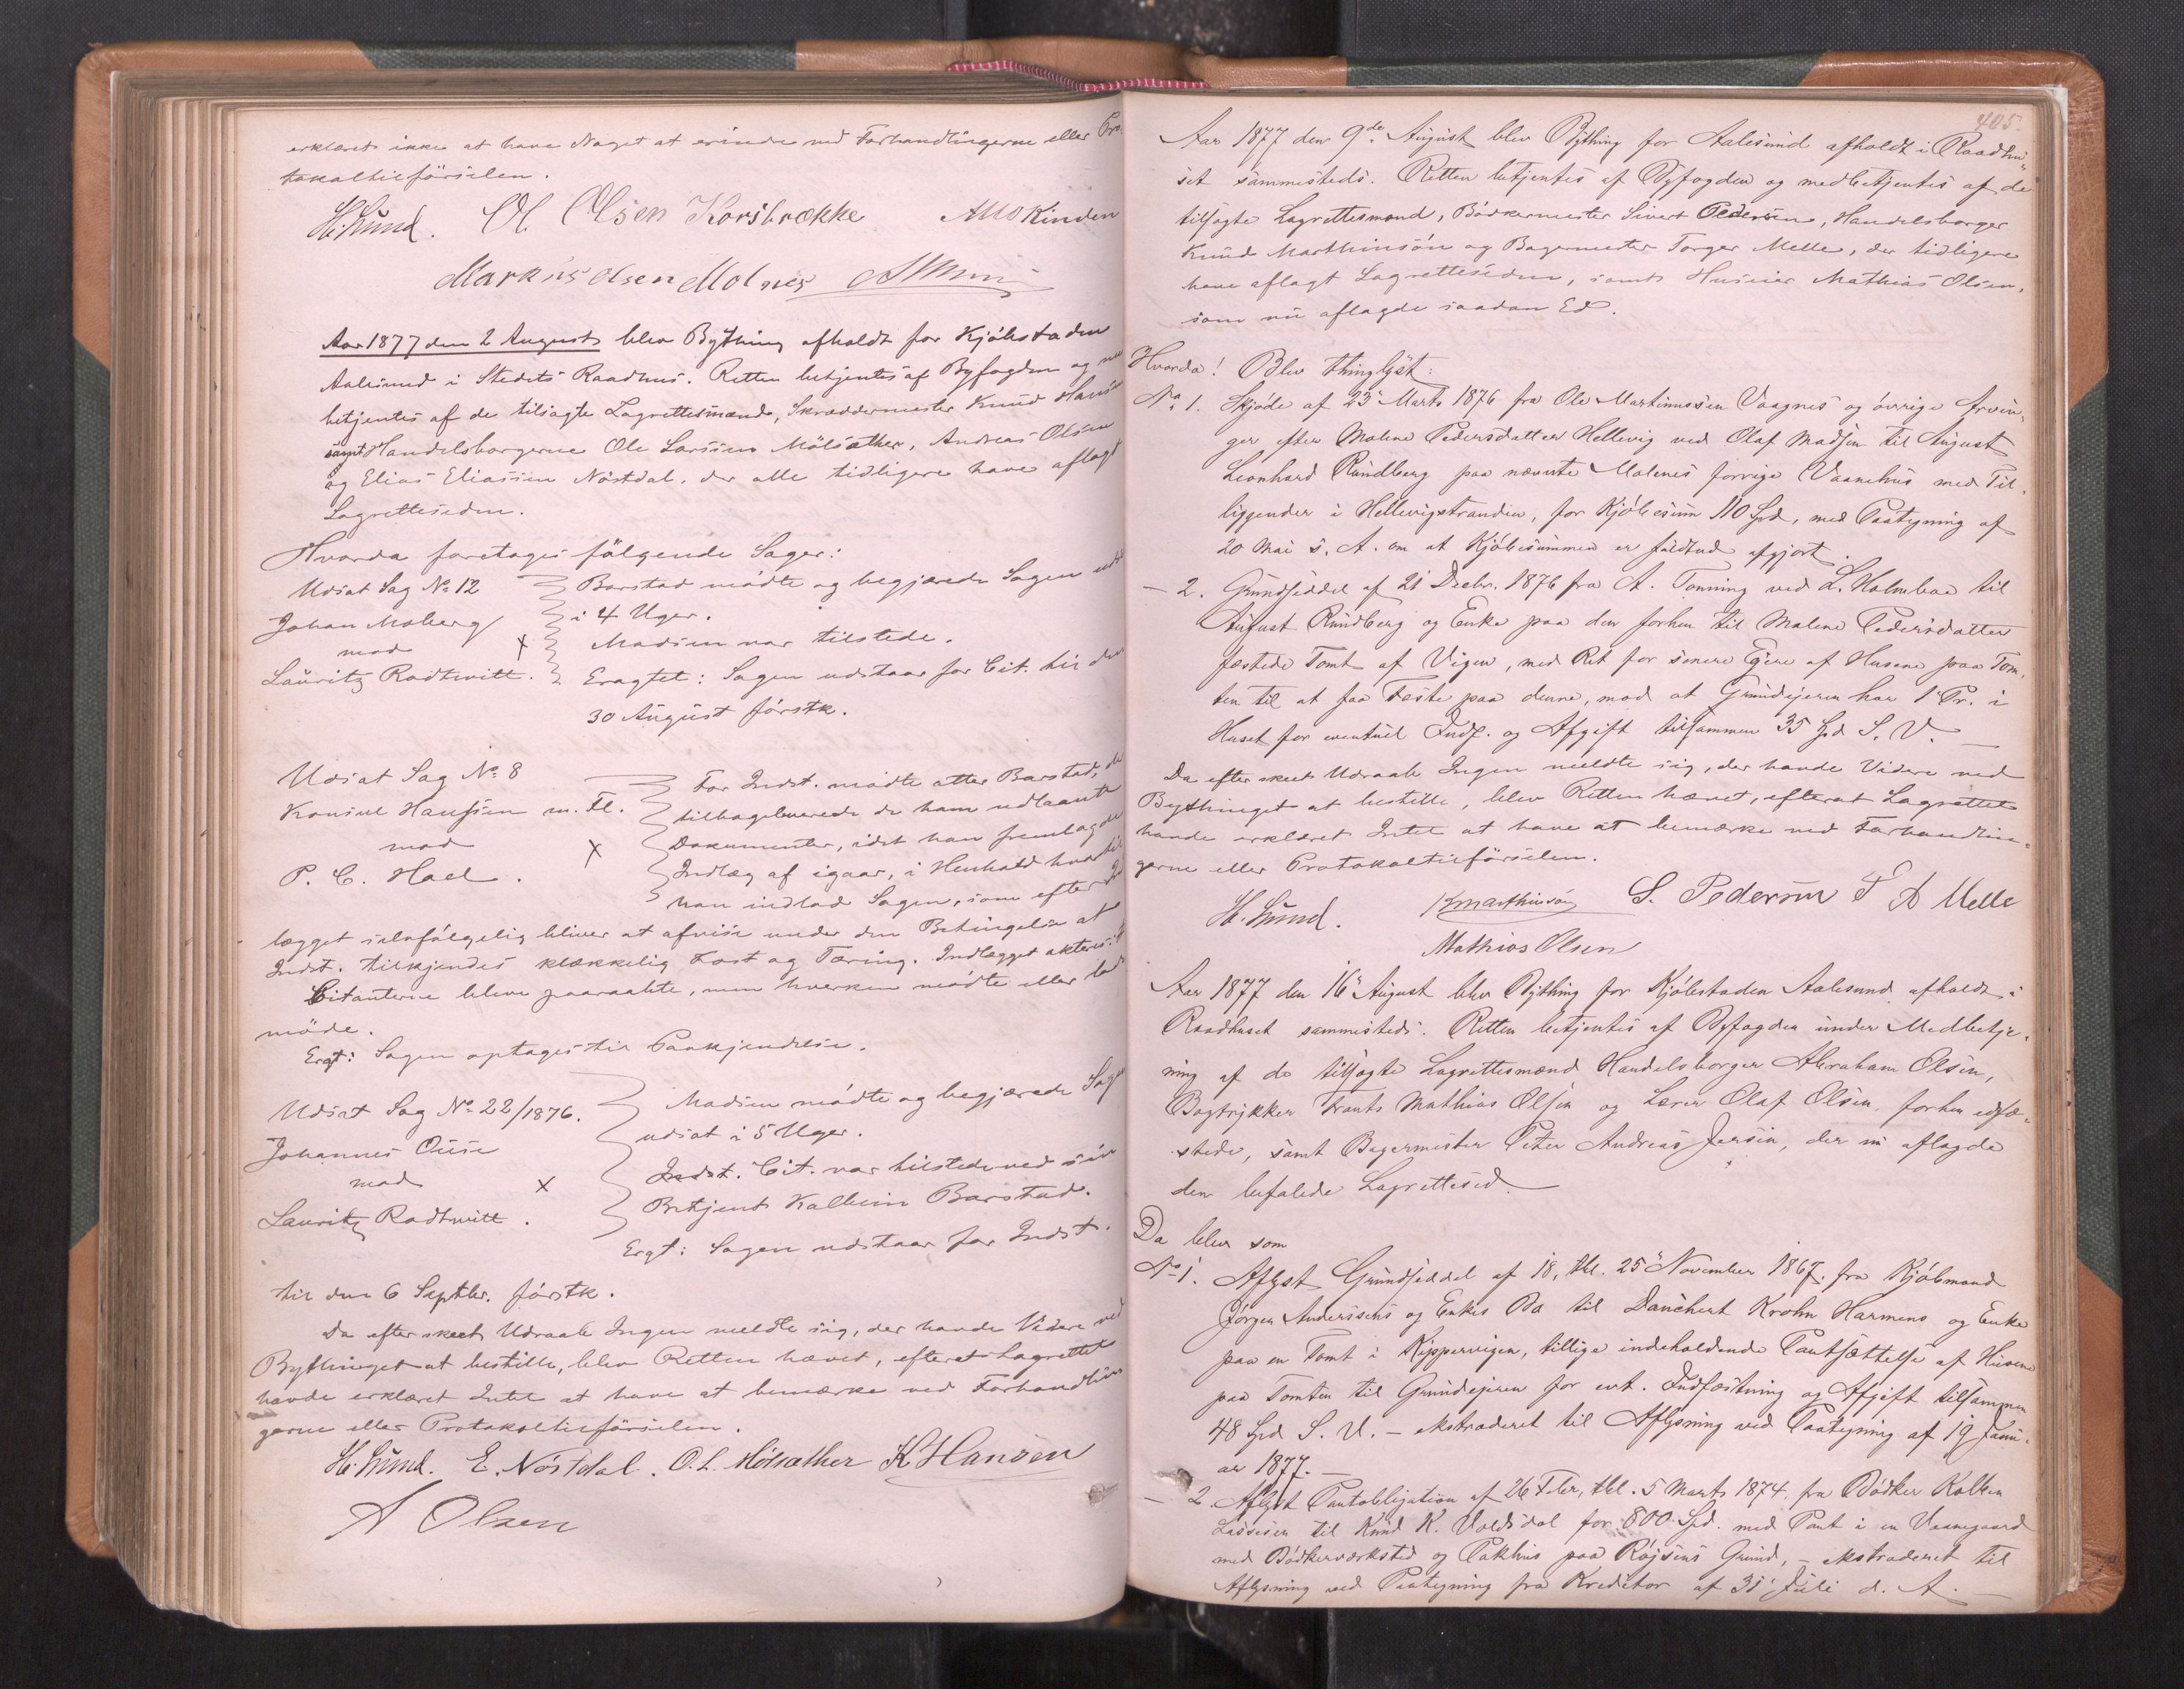 erklæret ikke at have Noget at erindre ved Forhandlingerne eller Pro-
tokoltilførselen.
H. Lund. Ol. Olsen Korsbrække AMOKinden
Markus Olsen Molnes
Aar 1877 den 2 August blev Bything afholdt for Kjøbstaden
Aalesund i Stedets Raadhus. Retten betjentes af Byfogden og med
betjentes af de tilsagte Lagrettesmænd, Skræddermester Knud Hansen
samt Handelsborgerne Ole Larssen Mölsæther, Andreas Olsen
og Elias Eliassen Nöstdal, der alle tidligere have aflagt
Lagretteseden.
Hvorda foretoges fölgende Sager:
Udsat Sag No 12
Johan Moberg
mod
Lauritz Rodtwitt.
Barstad mödte og begjærede Sagen udsat
i 4 Uger.
Madsen var tilstede.
Eragtet: Sagen udstaar for Cit. til den
30 August förstk.
Udsat Sag No 8
Konsul Hanssen m. Fl.
mod
P. C. Hoel.
For Indst. mödte atter Barstad, der
tilbageleverede de ham udlaante
Dokumenter, idet han fremlagde
Indlæg af igaar, i Henhold hvortil
han indlod Sagen, som efter Ind
lægget selvfölgelig bliver at afvise under den Betingelse at
Indst. tilkjendes klækkelig Kost og Tæring. Indlægget akteres:
Citanterne bleve paaraabte, men hverken mödte eller lod
möde.
Ergt: Sagen optages til Paakjendelse.
Udsat Sag No 22/1876.
Johannes Ouse
mod
Lauritz Rodtwitt.
Madsen mödte og begjærede Sagen
udsat i 5 Uger.
Indst. Cit. var tilstede ved sin
Betjent Kolbein Barstad.
Ergt: Sagen udstaar for Indst.
til den 6 Septbr. förstk.
Da efter skeet Udraab Ingen meldte sig, der havde Videre ved
Bythinget at bestille, blev Retten hævet, efterat Lagrettet
havde erklæret Intet at have at bemærke ved Forhandlin
gerne eller Protokoltilförselen.
H. Lund. E. Nöstdal. O. L. Mölsæther K Hansen
A Olsen
405.
Aar 1877 den 9de August blev Bything for Aalesund afholdt i Raadhu-
set sammesteds. Retten betjentes af Byfogden og medbetjentes af de
tilsagte Lagrettesmænd, Bödkermester Sivert Pedersen, Handelsborger
Knud Marthinsön og Bagermester Torger Melle, der tidligere
have aflagt Lagretteseden, samt Huseier Mathias Olsen,
som nu aflagde saadan Ed.
Hvorda! Blev thinglyst:
No 1. Skjøde af 23 Marts 1876 fra Ole Martinussen Vaagnes og övrige Arvin-
ger efter Malene Pedersdatter Hellevig ved Olaf Madsen til August
Leonhard Rundberg paa nævnte Malenes forrige Vaanehus med Til-
liggender i Hellevigstranden, for Kjöbesum 110 Spd, med Paategning af
20 Mai s. A. om at Kjöbesummen er fuldtud afgjort.
- 2. Grundseddel af 21 Decbr. 1876 fra A. Tonning ved L. Holmboe til
August Rundberg og Enke paa den forhen til Malene Pedersdatter
fæstede Tomt af Vigen, med Ret for senere Eiere af Husene paa Tom-
ten til at faa Fæste paa denne, mod at Grundejeren har 1 Pr. i
Huset for eventuel Indf. og Afgift tilsammen 35 Spd S. V.
Da efter skeet Udraab Ingen meldte sig, der havde Videre ved
Bythinget at bestille, blev Retten hævet, efterat Lagrettet
havde erklæret Intet at have at bemærke ved Forhandlin-
gerne eller Protokoltilförselen.
H. Lund. K Marthinsön S. Pedersen T A Melle
Mathias Olsen
Aar 1877 den 16 August blev Bything for Kjöbstaden Aalesund afholdt i
Raadhuset sammesteds. Retten betjentes af Byfogden under Medbetje-
ning af de tilsagte Lagrettesmænd Handelsborger Abraham Olsen,
Bogtrykker Frants Mathias Olsen og Lærer Olaf Olsen, forhen edfæ-
stede, samt Bagermester Peter Andreas Jensen, der nu aflagde
den befalede Lagretteed.
Da blev som
No 1. Aflyst Grundseddel af 18, thl. 25 November 1867 fra Kjöbmand
Jörgen Anderssens og Enkes Bo til Danchert Krohn Harmens og Enke
paa en Tomt i Kippervigen, tillige indeholdende Pantsættelse af Husene
paa Tomten til Grundejeren for evt. Indfæstning og Afgift tilsammen
48 Spd S. V. - ekstraderet til Aflysning ved Paategning af 19 Janu-
ar 1877.
- 2. Aflyst Pantobligation af 26 Febr, thl. 5 Marts 1874 fra Bödker Kolben
Lassesen til Knud K. Voldsdal for 800 Spd. med Pant i en Vaanegaard
med Bödkerværksted og Pakhus paa Röjsens Grund, - ekstraderet til
Aflysning ved Paategning fra Kreditor af 31 Juli d. A.